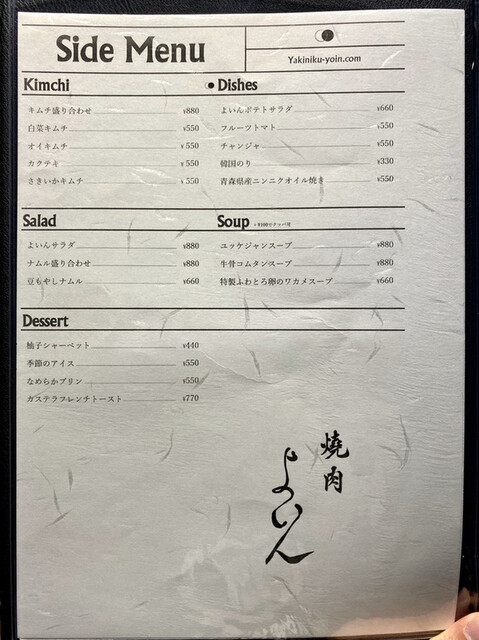 Side Menu
Yakiniku-yoin.com
Kimchi
キムチ盛り合わせ ¥880
白菜キムチ ¥550
オイキムチ ¥550
カクテキ ¥550
さきいかキムチ ¥550
Dishes
よいんポテトサラダ ¥660
フルーツトマト ¥550
チャンジャ ¥550
韓国のり ¥330
青森県産ニンニクオイル焼き ¥550
Salad
よいんサラダ ¥880
ナムル盛り合わせ ¥880
豆もやしナムル ¥660
Soup
ユッケジャンスープ ¥880
牛骨コムタンスープ ¥880
特製ふわとろ卵のワカメスープ ¥660
Dessert
柚子シャーベット ¥440
季節のアイス ¥550
なめらかプリン ¥550
カステラフレンチトースト ¥770
燒肉
よいん